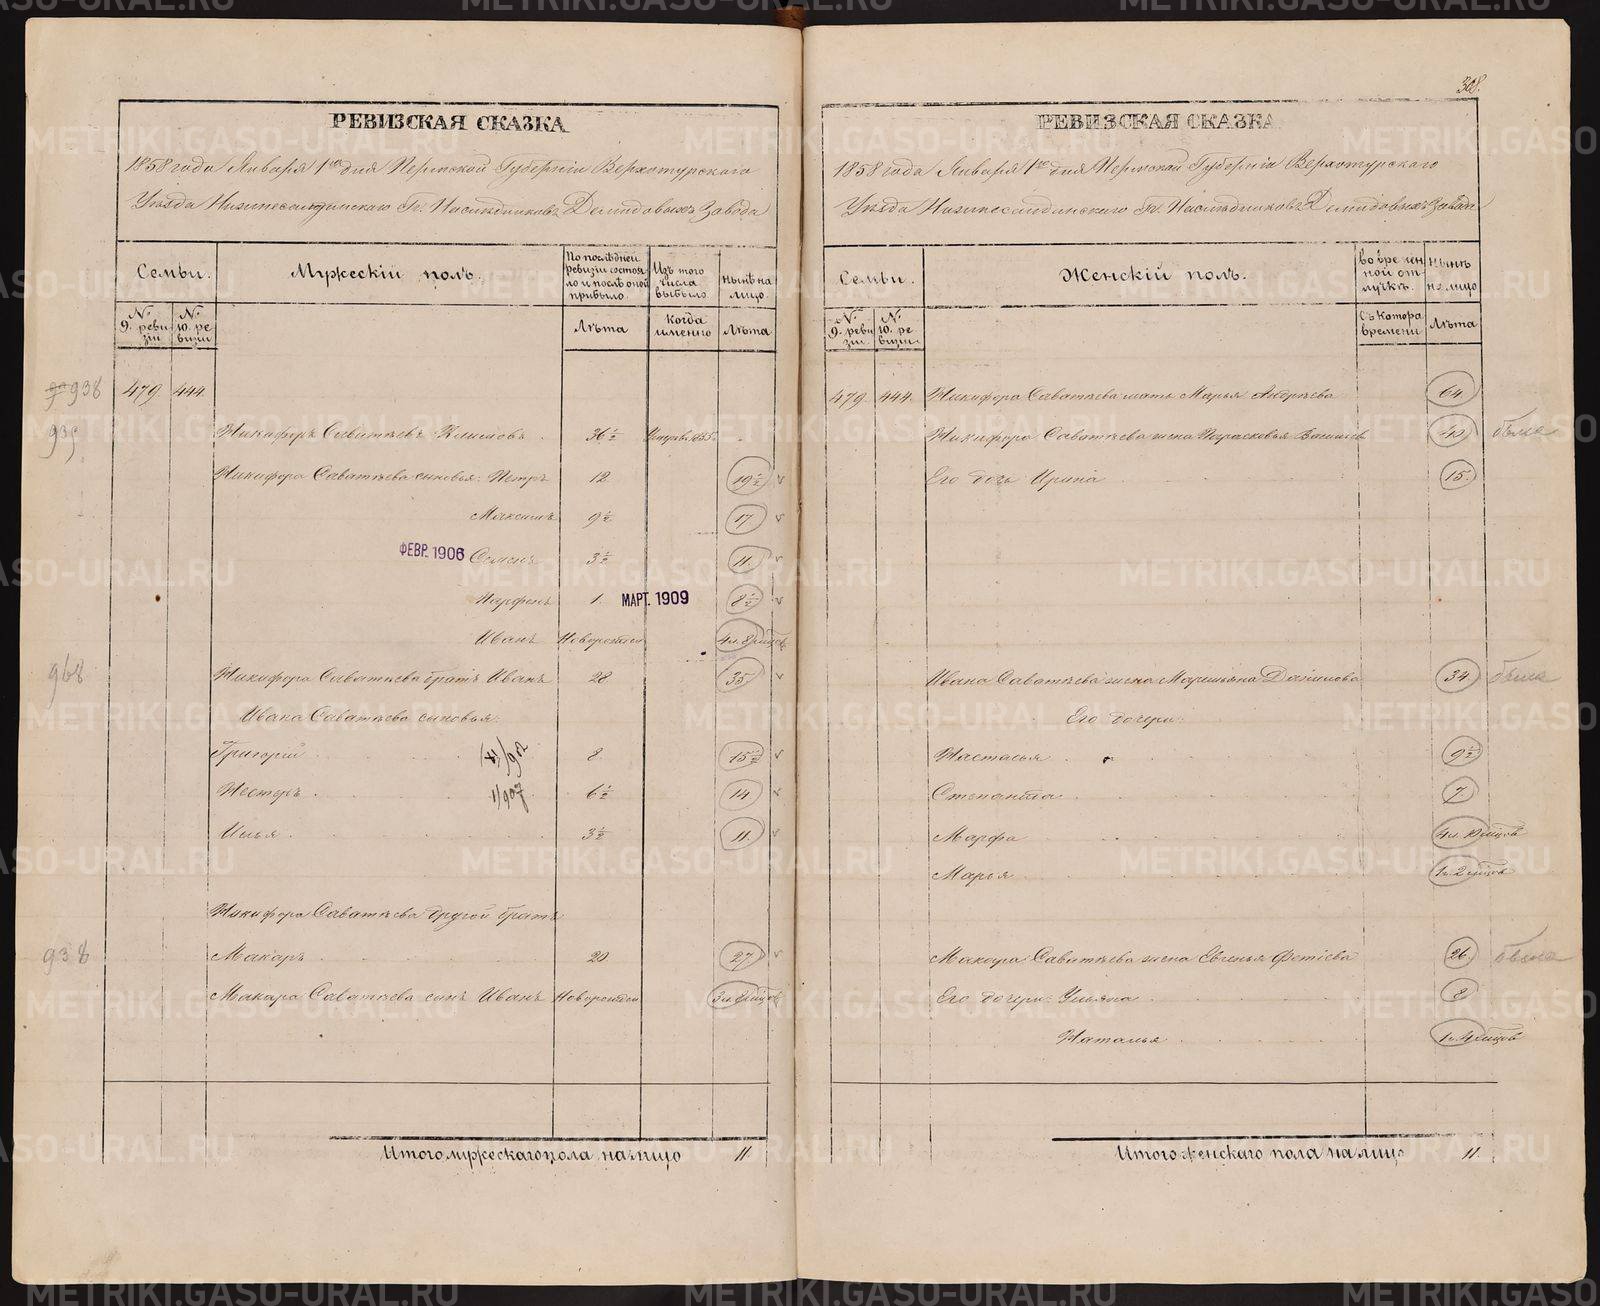 308.
РЕВИЗСКАЯ СКАЗКА
1858 года Января 1го дня Пермской Губерніи Верхотурскаго
Уѣзда Нижнесалдинскаго Гг. Наслѣдниковъ Демидовыхъ Завода
Семьи.
Мужескій полъ.
По послѣдней ревизіи состояло и послѣ оной прибыло.
Изъ того числа выбыло.
Нынѣ на лицо.
№ 9. ревизіи
№ 10. ревизіи
Лѣта
Когда именно
Лѣта
938 479. 444.
939. Никифоръ Саватѣевъ Климовъ 36 ½ 1855.
Никифора Саватѣева сыновья: Петръ 12 19 ½
Максимъ 9 ½ 17
ФЕВР. 1906 Семенъ 3 ½ 11.
Парфенъ 1. МАРТ. 1909 8 ½
Иванъ Новорожден 4 л. 8 мѣцов
968 Никифора Саватѣева братъ Иванъ 28 35
Ивана Саватѣева сыновья:
Григорій 8 15 ½
Несторъ 6 ½ 14
Илья 3 ½ 11.
Никифора Саватѣева другой братъ
938 Макаръ 20 27
Макара Саватѣева сынъ Иванъ Новорожден 3 л. 8 мѣцов
Итого мужескаго пола на лицо 11.
РЕВИЗСКАЯ СКАЗКА
1858 года Января 1го дня Пермской Губерніи Верхотурскаго
Уѣзда Нижнесалдинскаго Гг. Наслѣдниковъ Демидовыхъ Завода
Семьи.
Женскій полъ.
Во временной отлучкѣ.
Нынѣ на лицо
№ 9. ревизіи.
№ 10. ревизіи.
Съ котора времени
Лѣта
479. 444. Никифора Саватѣева мать Марья Андреева 64
Никифора Саватѣева жена Парасковья Васильев 40
Его дочь Ирина 15.
Ивана Саватѣева жена Маремьяна Данилова 34.
Его дочери:
Настасья 9 ½
Степанида 7.
Марфа 4 л. 10 мѣцов
Марья 1 г. 2 мѣцов
Макара Саватѣева жена Евгенья Фотіева 26.
Его дочери: Ульяна 8
Наталья 1 г. 4 мѣцов
Итого женскаго пола на лицо 11.
METRIKI.GASO-URAL.RU